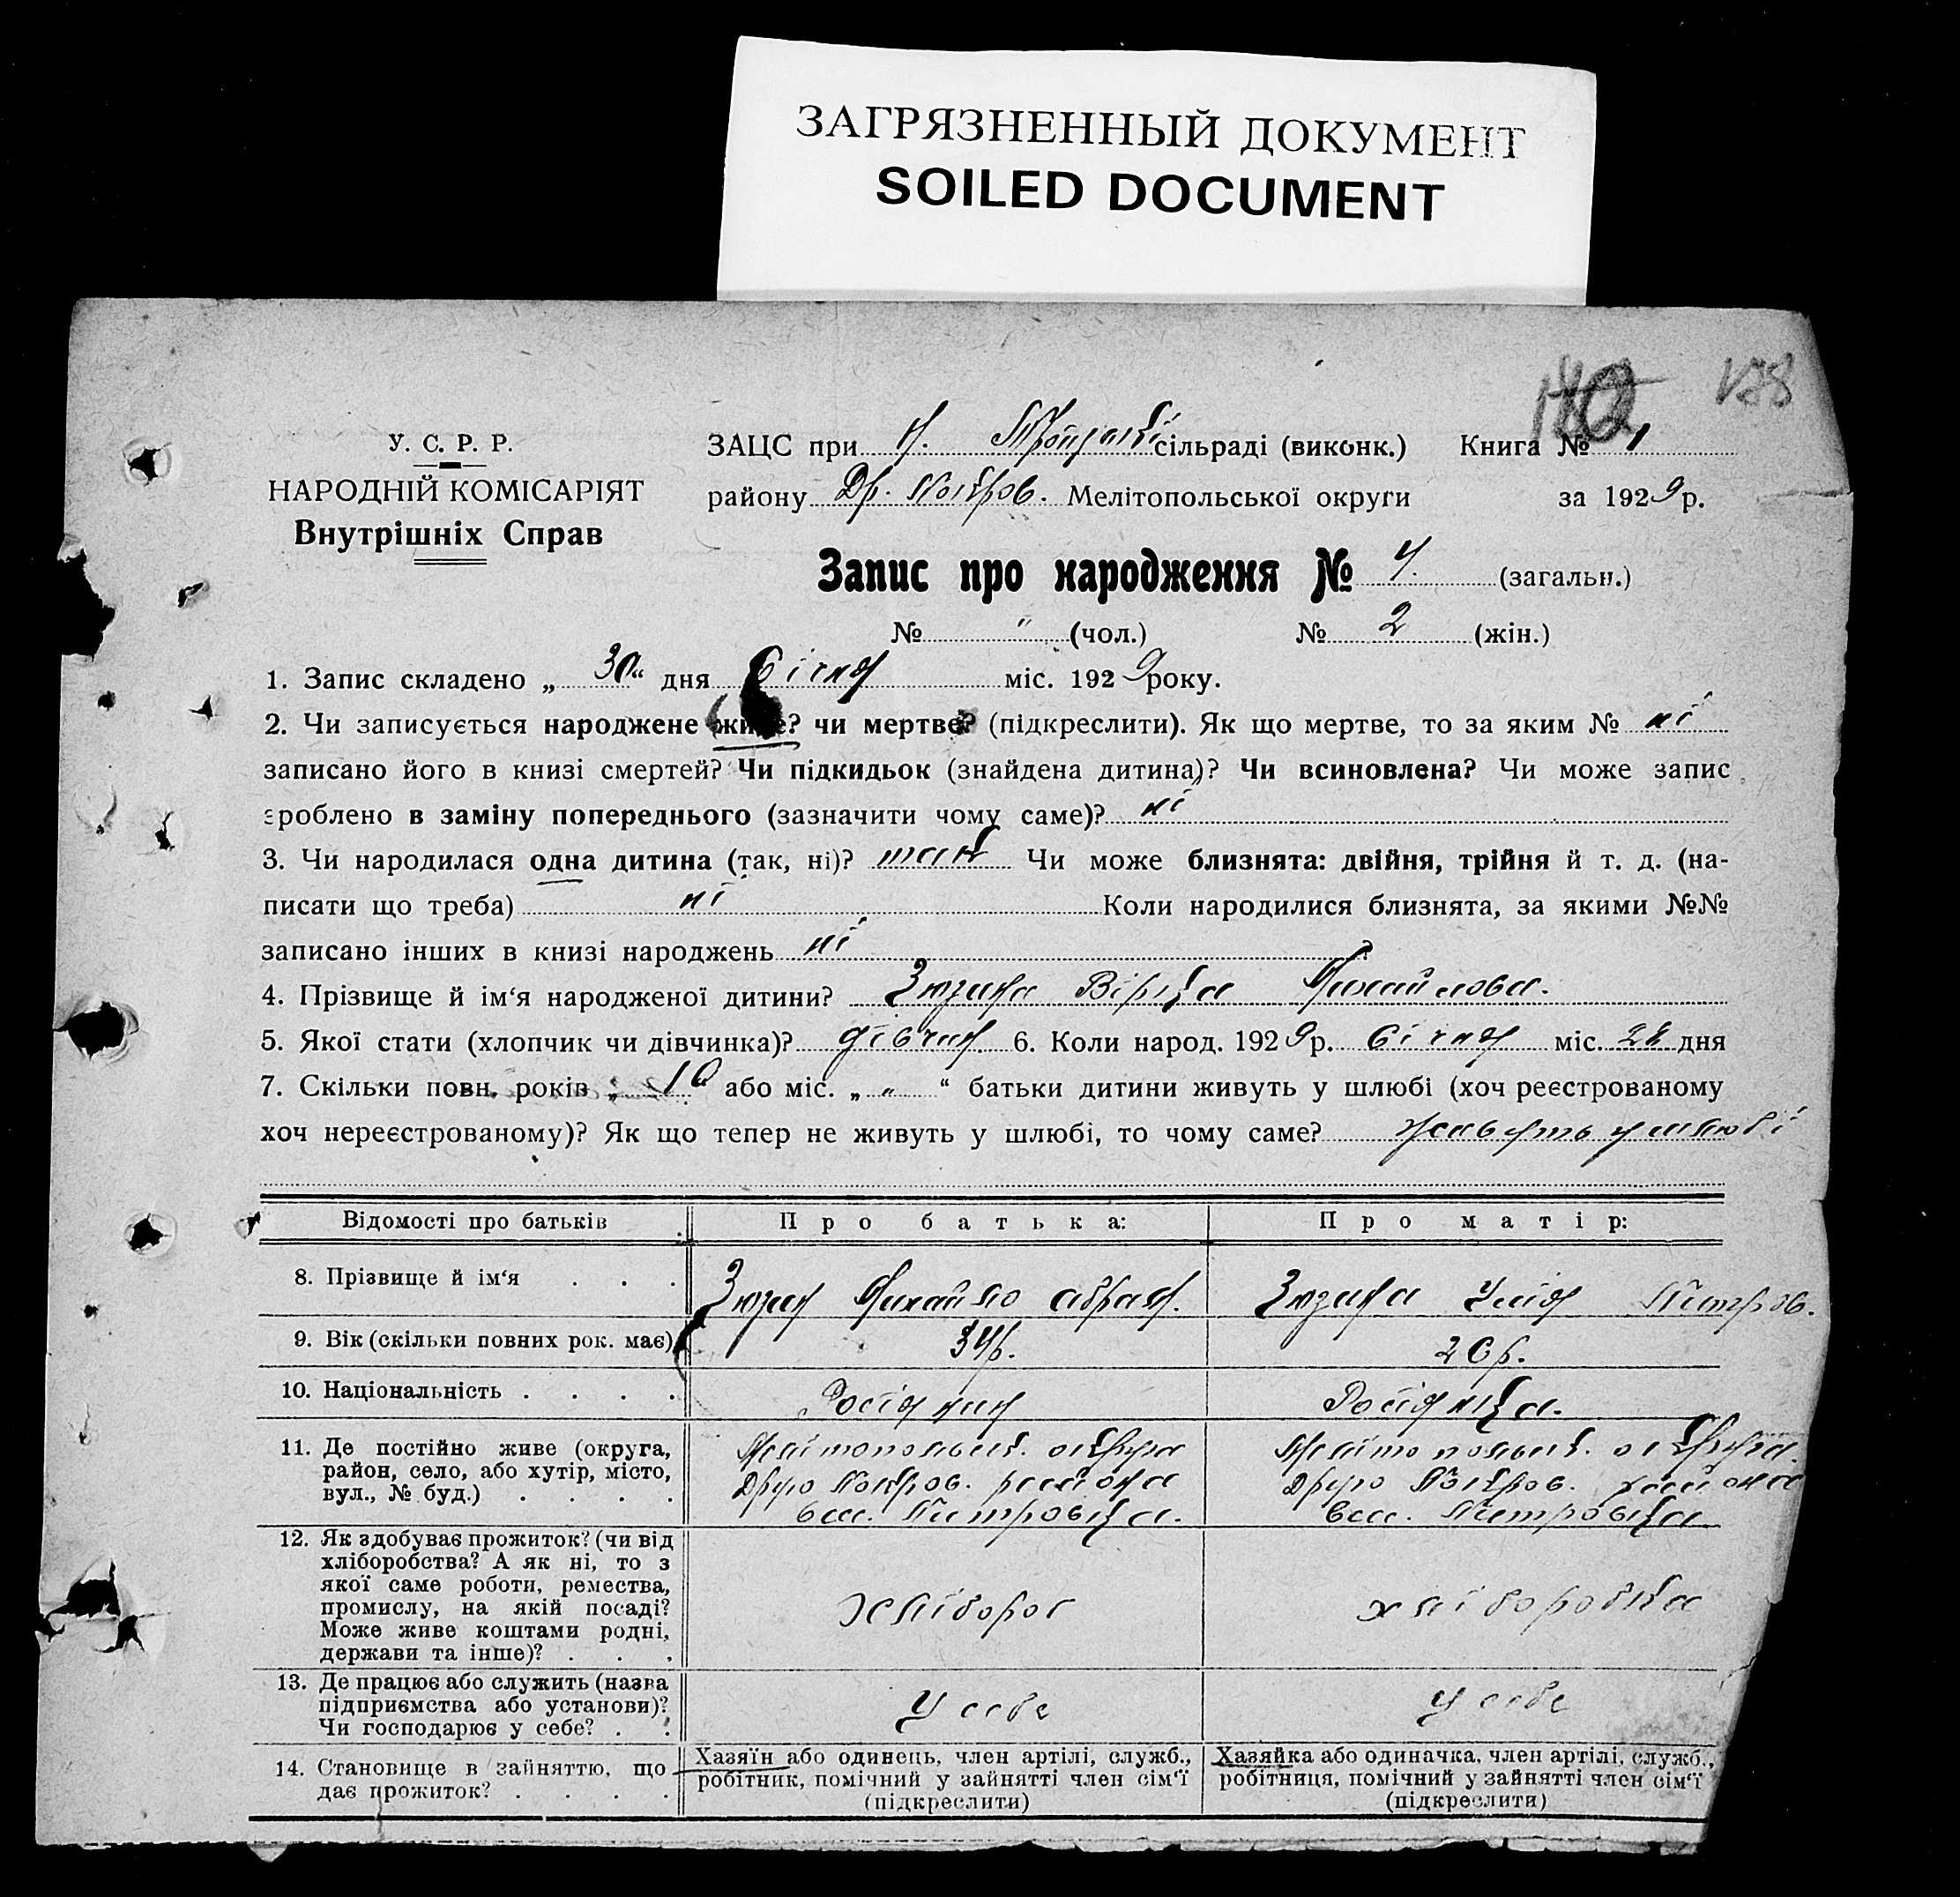 ЗАГРЯЗНЕННЫЙ ДОКУМЕНТ
SOILED DOCUMENT
178
У. С. Р. Р.
НАРОДНІЙ КОМІСАРІЯТ
Внутрішніх Справ
ЗАЦС при Н. Троцькі сільраді (виконк.) Книга № 1
району Др. Покров. Мелітопольської округи за 1929 р.
Запис про народження № 4. (загальн.)
№ " (чол.) № 2 (жін.)
1. Запис складено „ 30 “ дня Січня міс. 1929 року.
2. Чи записується народжене живе? чи мертве? (підкреслити). Як що мертве, то за яким № ні
записано його в книзі смертей? Чи підкидьок (знайдена дитина)? Чи всиновлена? Чи може запис
зроблено в заміну попереднього (зазначити чому саме)? ні
3. Чи народилася одна дитина (так, ні)? так Чи може близнята: двійня, трійня й т. д. (на-
писати що треба) ні Коли народилися близнята, за якими №№
записано інших в книзі народжень ні
4. Прізвище й ім‘я народженої дитини? Зюзина Вірка Михайлова.
5. Якої стати (хлопчик чи дівчинка)? дівчин 6. Коли народ. 1929 р. Січня міс. 22 дня
7. Скільки повн. років „ 10 “ або міс. „ " “ батьки дитини живуть у шлюбі (хоч реєстрованому
хоч нереєстрованому)? Як що тепер не живуть у шлюбі, то чому саме? живуть у шлюбі
Відомості про батьків Про батька: Про матір:
8. Прізвище й ім‘я . . . Зюзин Михайло Абрам. Зюзина Петров.
9. Вік (скільки повних рок. має) 34р. 26р.
10. Національність . . . . Росіянин Росіянка.
11. Де постійно живе (округа, Мелітопольск. округа Мелітопольск. округа.
район, село, або хутір, місто, Друго Покров. района Друго Покров. района
вул., № буд.) . . . . вас. Петровка. вас. Петровка
12. Як здобуває прожиток? (чи від
хліборобства? А як ні, то з
якої саме роботи, ремества,
промислу, на якій посаді? хлібороб хлібороби
Може живе коштами родні,
держави та інше)? . . .
13. Де працює або служить (назва
підприємства або установи)? У себе У себе
Чи господарює у себе? . .
14. Становище в зайняттю, що Хазяїн або одинець, член артілі, служб., Хазяйка або одиначка, член артілі, служб.,
дає прожиток? . . . . робітник, помічний у зайнятті член сім‘ї робітниця, помічний у зайнятті член сім‘ї
(підкреслити) (підкреслити)